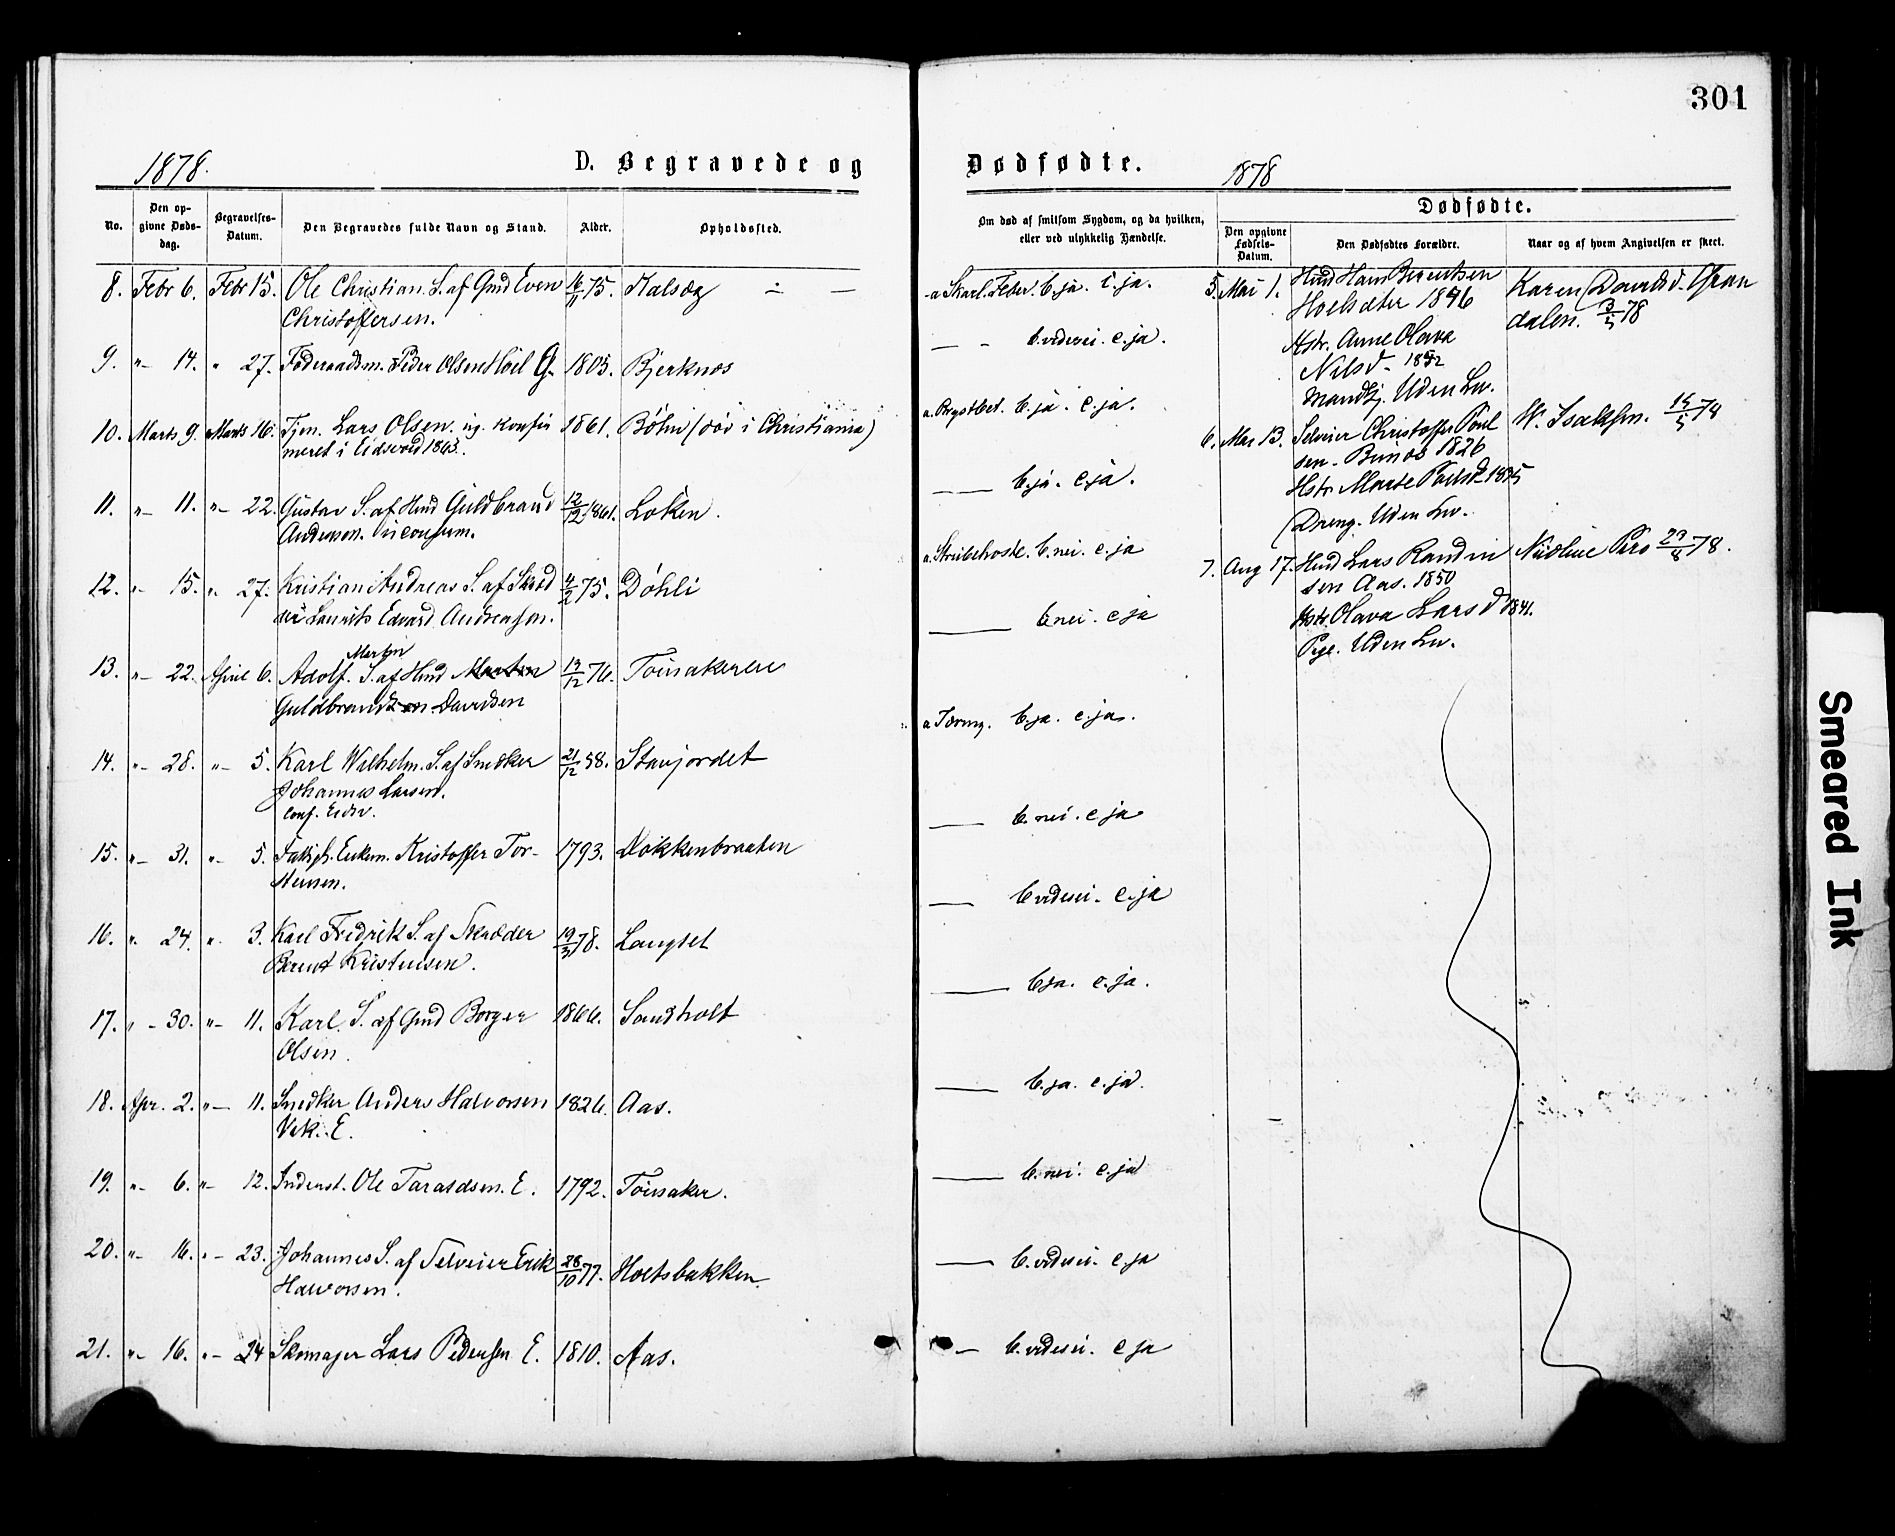 301
1878.
D. Begravede og
No.
Den op-
givne Døds-
dag.
Begravelses-
Datum.
Den Begravedes fulde Navn og Stand.
Alder.
Opholdssted.
8. Febr 6. Febr 15. Ole Christian. S. af Gmd Even 16/11 75. Kalsæg
Christoffersen.
9. " 14. " 27. Føderaadsm. Peder Olsen G. 1805. Bjerknes
10. Marts 9. Marts 16. Tjen. Lars Olsen. ug. Konfir 1861. Böhn (död i Christiania)
meret i Eidsvold 1863.
11. " 11. " 22. Gustav S. af Hmd Guldbrand 12/12 1861. Løken.
Andersen. inconfirm.
12. " 15. " 27. Kristian Andreas S. af Skræd 4/2 75. Döhli
Laurits Edvard Andreasen.
Martin
13. " 22. April 6. Adolf. S. af Hmd Morten 19/12 76. Toinsakeren
Guldbrandsen Davidsen
14. " 28. " 5. Karl Wilhelm. S. af Snedker 21/12 58. Stavjordet
Johannes Larsen.
Conf. Eidsv.
15. " 31. " 5. Enkem. Kristoffer Tor- 1793. Nökkenbraaten
stensen.
16. " 24. " 3. Karl Fredrik S. af Skræder 19/3 78. Langset
Berent Kristensen.
17. " 30. " 11. Karl. S. af Gmd Borger 1866. Sandholt
Olsen.
18. Apr. 2. " 11. Snedker Anders Halvorsen 1826. Aas.
Vek. E.
19. " 6. " 12. Inderst. Ole Taraldsen. E. 1792. Toinsaker.
20. " 16. " 23. Johannes S. af Selveier Erik 28/10 77. Holtsbakken.
Halvorsen.
21. " 16. " 24 Skomager Lars Pedersen E. 1810. Aas.
Dødfødte.
1878
Om død af smitsom Sygdom, og da hvilken,
eller ved ulykkelig Hændelse.
Dødfødte.
Den opgivne
Fødsels-
Datum.
Den Dødfødtes Forældre.
Naar og af hvem Angivelsen er skeet.
a Skarl. Feber. b. ja. c. ja.
b. vides ei. c. ja.
a. Brystbet. b. ja. c. ja.
b. ja. c. ja.
a. Strubehoste. b. nei. c. ja
b. nei. c ja
a Tæring. b. ja. c. ja.
b. nei. c ja
b vides ei. c. ja
b ja. c. ja.
b. ja. c. ja.
b. nei. c. ja
b. vides ei. c. ja
b. vides ei. c ja
5. Mai 1. Hmd Hans Berentsen
1846
Hstr. Anne Olava
Nilsd. 1852
Mandkj. Uden Lev.
Karen Davidsd.
dalen. 3/5 78
6. Mai 13. Selveier Christoffer Poul
sen. 1826
Hstr Marte 1835
Dreng. Uden Lev.
Isaksen. 15/5 78
7. Aug 17. Hmd Lars Randin
sen Aas. 1850
Hstr. Olava Larsd 1841.
Pige. Uden Lev.
Nicoline 23/8 78.
Smeared Ink